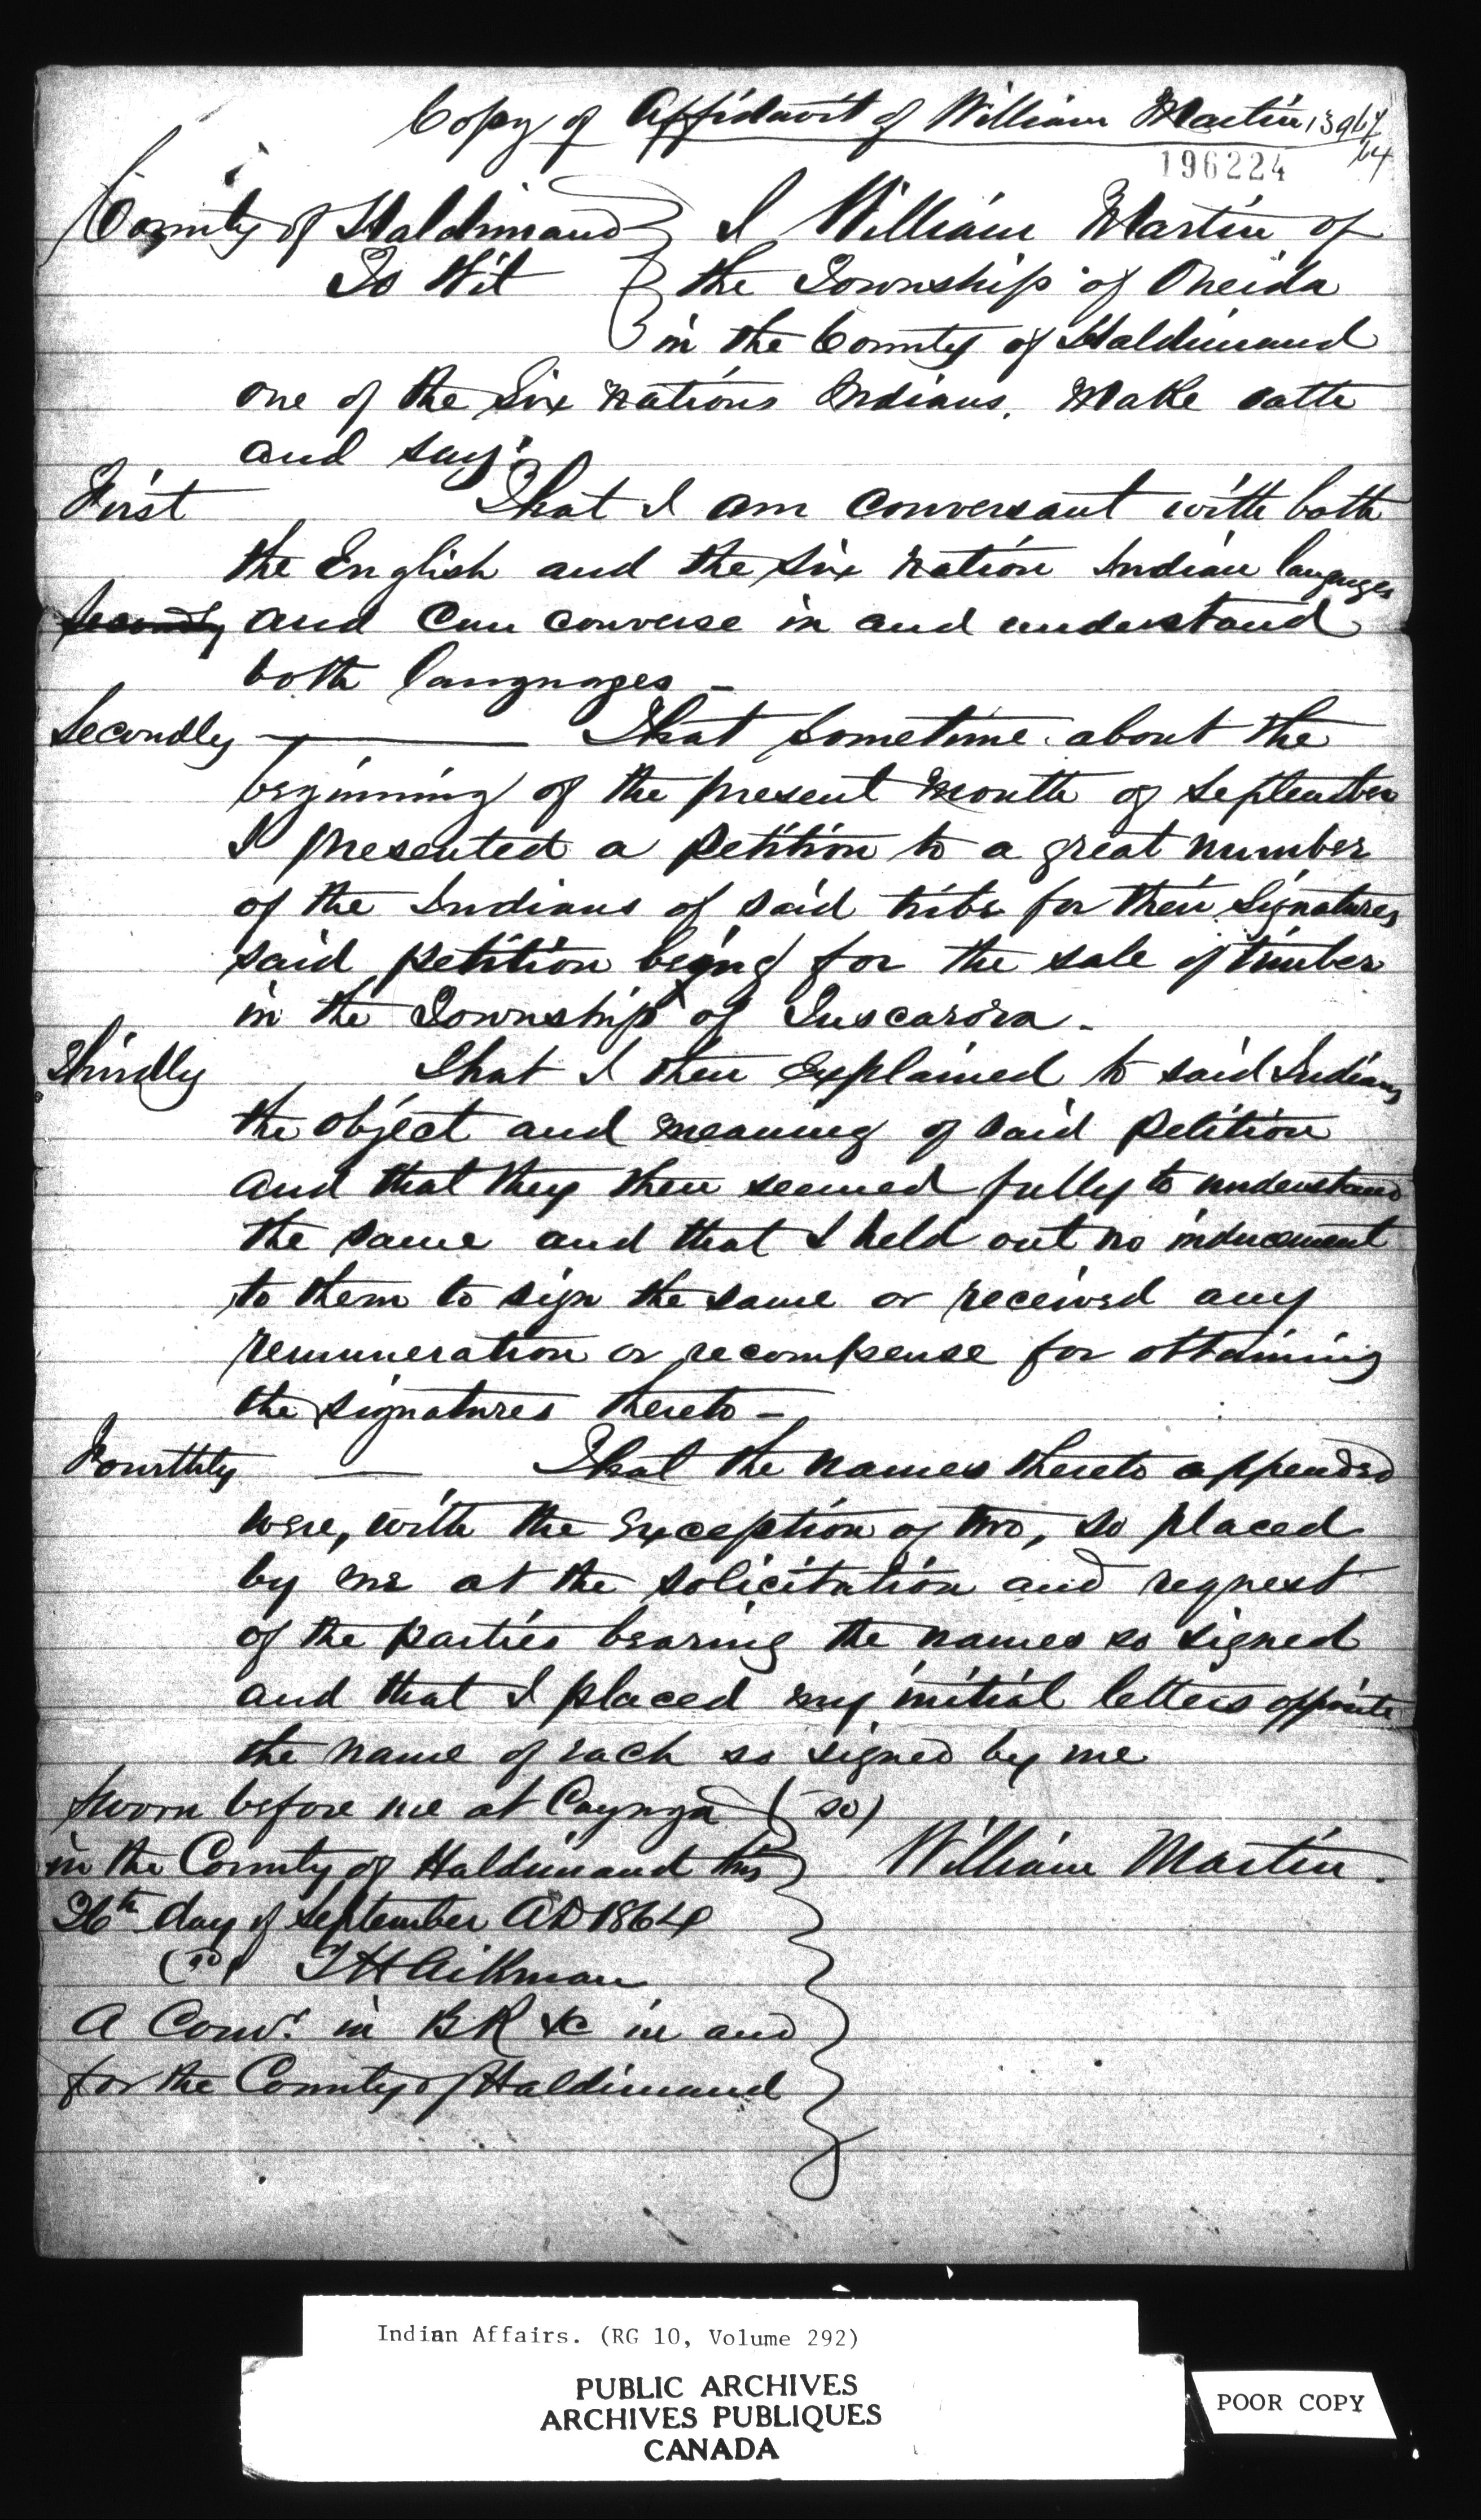 Copy of Affidavit of William Martin 13967
64
196224
County of Haldimand } I William Martin of
To Wit } the Township of Oneida
in the County of Haldimand
one of the Six Nations Indians, Make oath
and say:
First That I am conversant with both
the English and the Six Nation Indian languages
Secondly and can converse in and understand
both languages —
Secondly — That sometime about the
beginning of the present month of September
I presented a petition to a great number
of the Indians of said tribe for their signatures
said petition being for the sale of timber
in the Township of Tuscarora.
Thirdly That I then explained to said Indians
the object and meaning of said petition
and that they then seemed fully to understand
the same and that I held out no inducement
to them to sign the same or received any
remuneration or recompense for obtaining
the signatures thereto —
Fourthly — That the names thereto appended
were, with the exception of two, so placed
by me at the solicitation and request
of the parties bearing the names so signed
and that I placed my initial letters opposite
the name of each so signed by me
Sworn before me at Cayuga (sd)
in the County of Haldimand this } William Martin.
26th day of September AD 1864
(sd) T H Aikman
A Comr. in BR &c in and
for the County of Haldimand
Indian Affairs. (RG 10, Volume 292)
PUBLIC ARCHIVES
ARCHIVES PUBLIQUES
CANADA
POOR COPY